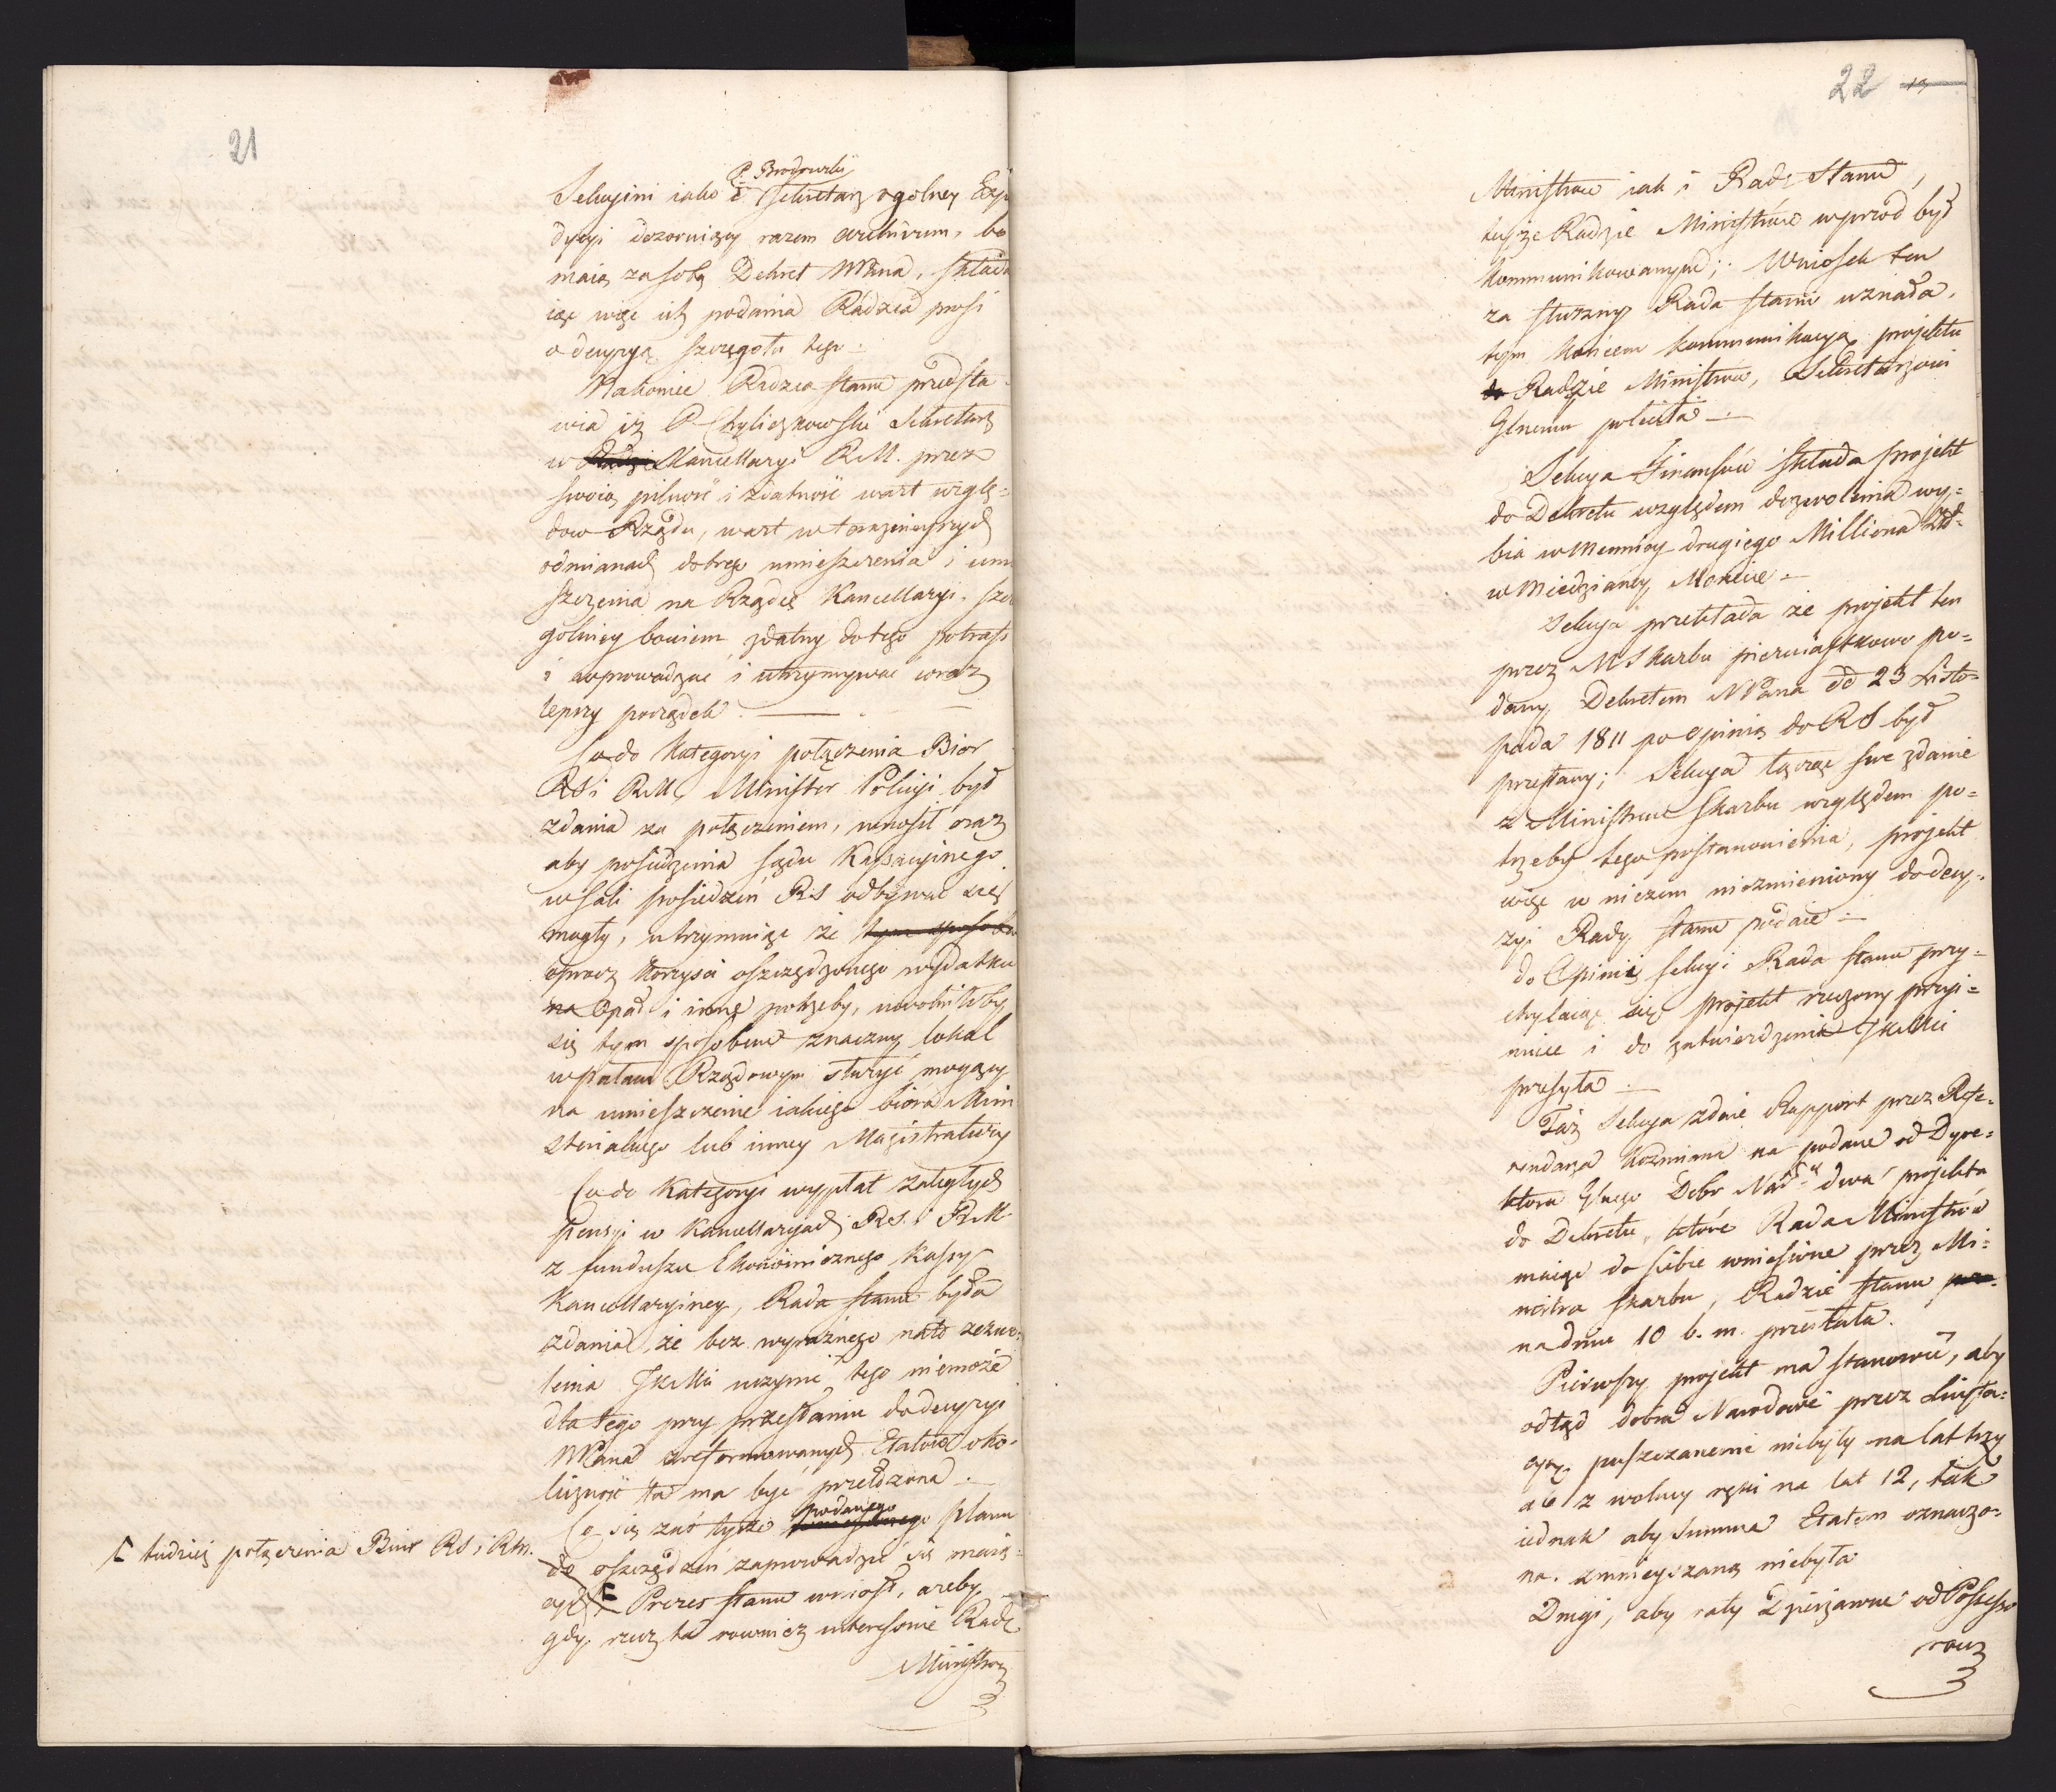 21
P. Brodowski
Sekcyini iako i Sekretarz ogolney Exp
dycyi dozoruiący razem Archivum, bo
maią za sobą Dekret NPana, składa
iąc więc ich podania Radzca prosi
o decyzyą szczegołu tego.
Nakoniec Radzca Stanu przedsta
wia iż P. Chyliczkowski Sekretarz
w Radzi Kancellaryi R.M. przez
swoią pilność i zdatność wart wzglę=
dow Rządu, wart w teraznieyszych
odmianach dobrego umieszczenia i umie
szczenia na Rządcę Kancellaryi, szcze
golniey bowiem zdatny do tego potrafi
i wprowadzać i utrzymywać coraz
lepszy porządek.
Co do kategoryi połączenia Bior
RS i RM, Minister Policyi był
zdania za połączeniem, wnosił oraz
aby posiedzenia Sądu Kassacyinego
w sali posiedzeń RS odbywać się
mogły, utrzymuiąc że tym sposobem
oprocz korzyści oszczędzonego wydatku
na Opał i inne potrzeby, uwolniłby
się tym sposobem znaczny lokal
w pałacu Rządowym służyć mogący
na umieszczenie iakiego biora Mini
steryalnego lub inney Magistratury
Co do Kategoryi wypłat zaległych
pensyi w Kancellaryach RS. i RM
z funduszu Ekonomicznego Kassy
Kancellaryiney, Rada Stanu była
zdania, że bez wyraźnego na to zezwo=
lenia JKMci uczynić tego niemoże
dla tego przy przesłaniu do decyzyi
NPana zreformowanych Etatow oko=
liczność ta ma być przełożona.
Co się zaś tycze podanego planu
do oszczędzeń zaprowadzić się maią=
cych Prezes Stanu wniosł, ażeby
⌈ tudzież połączenia Biur RS i RM.
gdy rzecz ta rownież interesuie Radę
Ministrow
22 13
Ministrow iak i Radę Stanu,
teyże Radzie Ministrow wprzod był
kommunikowanym; Wniosek ten
za słuszny Rada Stanu uznała,
tym końcem kommunikacyą projektu
do Radzie Ministrow, Sekretarzowi
Glnemu poleciła.
Sekcya Finansow składa projekt
do Dekretu względem dozwolenia wy=
bicia w Mennicy drugiego Milliona Zł=
w Miedzianey Monecie.
Sekcya przekłada że projekt ten
przez MSkarbu pierwiastkowo po=
dany, Dekretem NPana dd 23 Listo=
pada 1811 po Opinią do RS był
przesłany; Sekcya łącząc swe zdanie
z Ministrem Skarbu względem po=
trzeby tego postanowienia, projekt
więc w niczem niezmieniony do decy=
zyi Rady Stanu podaie.
do Opinii Sekcyi Rada Stanu przy=
chylaiąc się projekt rzeczony przyi=
muie i do zatwierdzenia JKMci
przesyła.
Taż Sekcya zdaie Rapport przez Refe=
rendarza Koźmiana na podane od Dyre=
ktora Glnego Dobr Nadch dwa projekta
do Dekretu, które Rada Ministrów
maiąc do siebie wniesione przez Mi=
nistra Skarbu, Radzie Stanu prze
na dniu 10 b. m. przesłała.
Pierwszy projekt ma stanowić, aby
odtąd dobra Narodowe przez Licyta=
cyą puszczanemi niebyły na lat trzy
ale z wolney ręki na lat 12, tak
iednak aby summa Etatem oznaczo=
na zmnieyszaną niebyła.
Drugi, aby raty Dzierzawne od Possesso
row